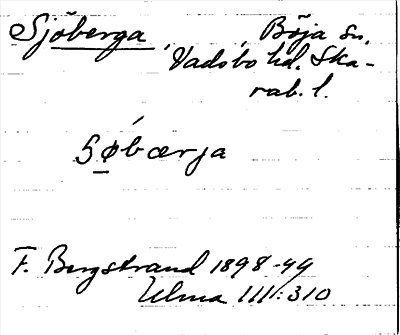 Sjöberga, Böja sn.
Vadsbo hd. Ska-
rab. l.
Sǿbærja
F. Bergstrand 1898-99
Ulma 111:310